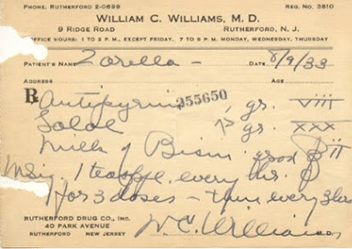 PHONE, RUTHERFORD 2-0669
REG. NO. 3810
WILLIAM C. WILLIAMS, M. D.
9 RIDGE ROAD RUTHERFORD, N. J.
OFFICE HOURS: 1 TO 2 P. M., EXCEPT FRIDAY. 7 TO 8 P. M. MONDAY, WEDNESDAY, THURSDAY
PATIENT'S NAME Zorella - DATE 8/9/33
ADDRESS
℞ Antipyrin 355650 gr. VIII
Salol gr. XXX
Milk of Bism
M Sig. 1 teaspf. every hr.
for 3 doses - then every 3 hrs
RUTHERFORD DRUG CO., INC.
40 PARK AVENUE
RUTHERFORD NEW JERSEY
W. C. Williams M.D.